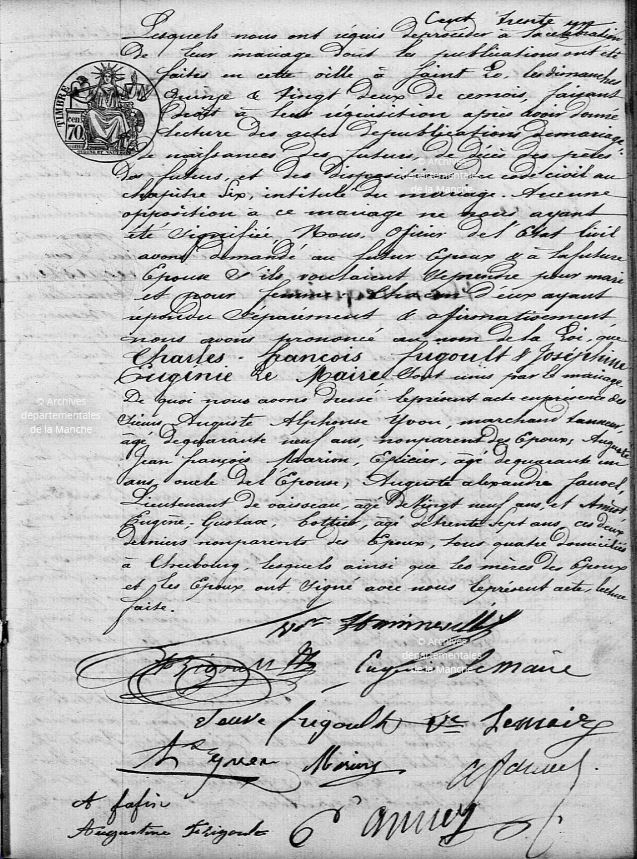 Cent trente un
Lesquels nous ont requis de procéder à la célébration
De leur mariage dont les publications ont été
faites en cette ville à Saint Lo, les dimanches
quinze & vingt deux de ce mois, faisant
droit à leur réquisition après avoir donné
lecture des actes de publications de mariage,
de naissances des futurs, de décès des pères
des futurs, et des dispositions du code civil au
chapitre Six, intitulé du mariage. Aucune
opposition à ce mariage ne nous ayant
été signifiée, Nous, Officier de l'Etat Civil
avons demandé au futur Epoux & à la future
Epouse S'ils voulaient Se prendre pour mari
et pour femme, chacun d'eux ayant
répondu Séparément & affirmativement
nous avons prononcé au nom de la Loi, que
Charles-françois frigoult & Joséphine
Eugénie Le Maire Sont unis par le mariage.
De quoi nous avons dressé le présent acte en présence des
Sieurs Auguste Alphonse Yvon, marchand tanneur,
âgé de quarante neuf ans, non parent des Epoux; Auguste
Jean françois Marion, Epicier, âgé de quarante un
ans, oncle de l'Epouse; Auguste alexandre fauvel,
Lieutenant de vaisseau, âgé de vingt neuf ans, et
Eugène, Gustave, bottier, âgé de trente sept ans, ces deux
derniers non parents des Epoux, tous quatre domiciliés
à Cherbourg, lesquels ainsi que les mères des Epoux
et les Epoux ont Signé avec nous le présent acte, lecture
faite.
Eugénie Lemaire
Veuve frigoult Ve Lemaire
Yvon Marion
A fafin
Augustine frigoult
TIMBRE
70
© Archives
départementales
de la Manche
© Archives
départementales
de la Manche
© Archives
départementales
de la Manche